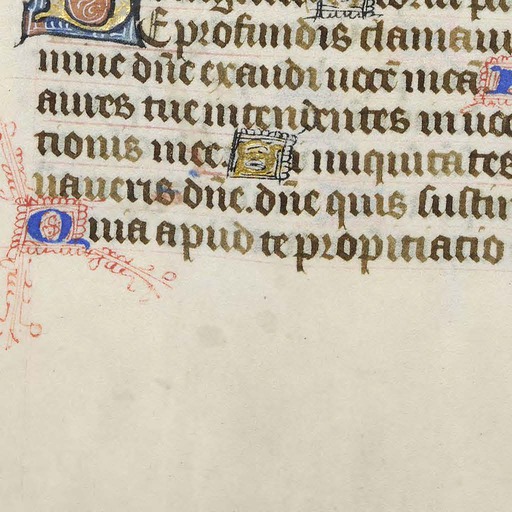 DE profundis clamaui
mine dn̄e exaudi uocē meā
aures tue intendentes in uoce
tionis mee. Si iniquitates
uaueris dn̄e. dn̄e quis sustin
Quia apud te propitiatio